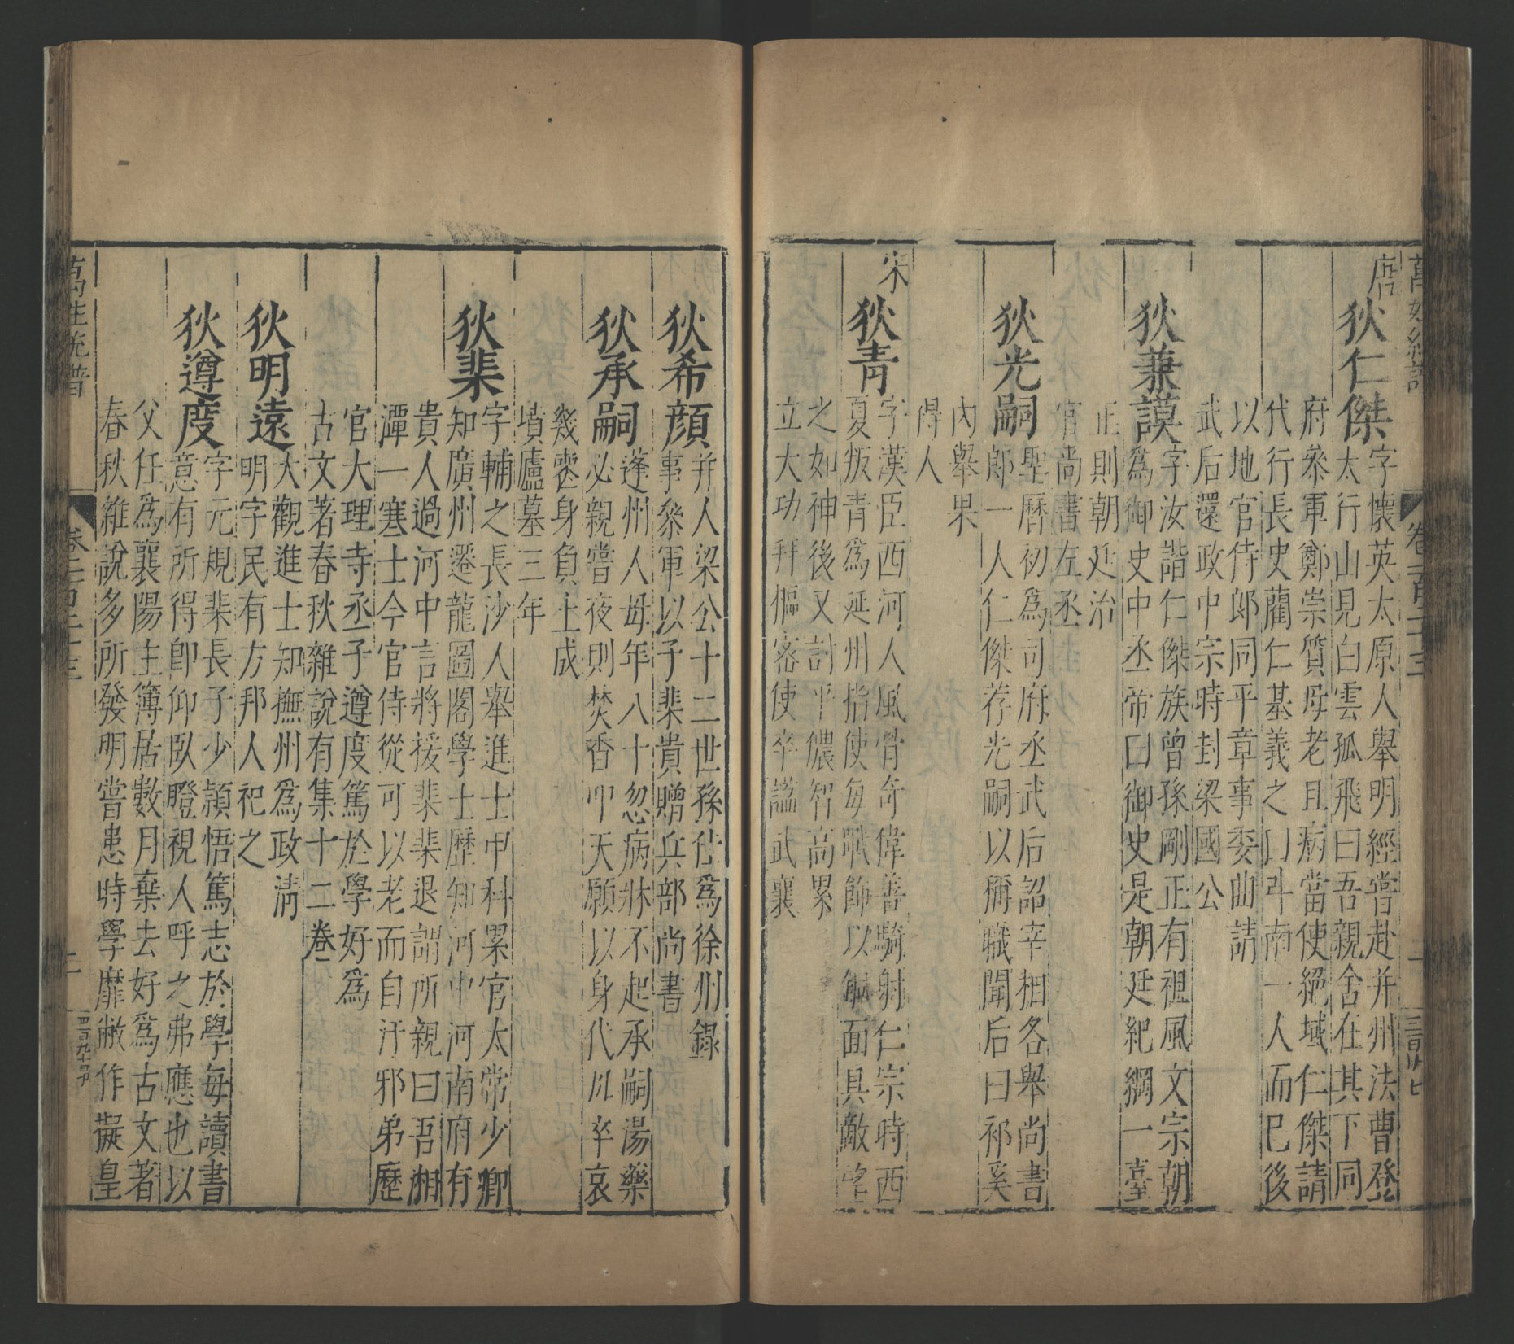 唐
狄仁傑字懷英太原人舉明經嘗赴并州法曹登
太行山見白雲孤飛曰吾親舍在其下同
府叅軍鄭崇質母老且病當使絕域仁傑請
代行長史藺仁基義之曰斗南一人而已後
以地官侍郎同平章事委曲請
武后還政中宗時封梁國公
狄兼謨字汝諧仁傑族曾孫剛正有祖風文宗朝
為御史中丞帝曰御史是朝廷紀綱一臺
正則朝廷治
官尚書左丞
狄光嗣聖曆初為司府丞武后詔宰相各舉尚書
郎一人仁傑荐光嗣以稱職聞后曰祁奚
內舉果
得人
宋
狄青字漢臣西河人風骨奇偉善騎射仁宗時西
夏叛青為延州指使每戰飾以銅面具敵望
之如神後又討平儂智高累
立大功拜樞密使卒謚武襄
狄希顔并人梁公十二世孫仕為徐州錄
事叅軍以子棐貴贈兵部尚書
狄承嗣蓬州人母年八十忽病牀不起承嗣湯藥
必親嘗夜則焚香叩天願以身代及卒哀
幾喪身負土成
墳廬墓三年
狄棐字輔之長沙人舉進士甲科累官太常少卿
知廣州遷龍圖閣學士歷知河中河南府有
貴人過河中言將援棐棐退謂所親曰吾湘
潭一寒士今官侍從可以老而自汙邪弟歷
官大理寺丞子遵度篤於學好為
古文著春秋雜說有集十二卷
狄明遠大觀進士知撫州為政清
明字民有方邦人祀之
狄遵度字元規棐長子少頴悟篤志於學每讀書
意有所得卽仰臥瞪視人呼之弗應也以
父任為襄陽主簿居數月棄去好為古文著
春秋雜說多所發明嘗患時學靡敝作擬皇
萬姓統譜
卷一百二十三
二